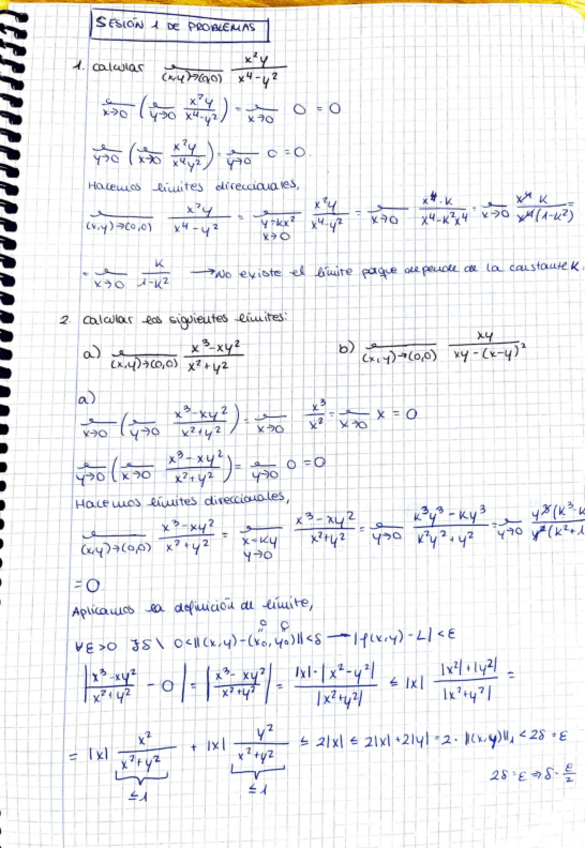 SESIÓN 1 DE PROBLEMAS
1. Calcular lim (x,y)→(0,0) x²y / x⁴-y²
lim x→0 (lim y→0 x²y / x⁴-y²) = lim x→0 0 = 0
lim y→0 (lim x→0 x²y / x⁴-y²) = lim y→0 0 = 0.
Hacemos límites direccionales,
lim (x,y)→(0,0) x²y / x⁴-y² = lim y=kx² x→0 x²y / x⁴-y² = lim x→0 x⁴·k / x⁴-k²x⁴ = lim x→0 x⁴ k / x⁴(1-k²) =
= lim x→0 k / 1-k² → No existe el límite porque depende de la constante k.
2. Calcular los siguientes límites:
a) lim (x,y)→(0,0) x³-xy² / x²+y² b) lim (x,y)→(0,0) xy / xy-(x-y)²
a)
lim x→0 (lim y→0 x³-xy² / x²+y²) = lim x→0 x³ / x² = lim x→0 x = 0
lim y→0 (lim x→0 x³-xy² / x²+y²) = lim y→0 0 = 0
Hacemos límites direccionales,
lim (x,y)→(0,0) x³-xy² / x²+y² = lim x=ky y→0 x³-xy² / x²+y² = lim y→0 k³y³-ky³ / k²y²+y² = lim y→0 y³(k³-k / y²(k²+1
=0
Aplicamos la definición de límite,
∀ε>0 ∃δ \ 0<||(x,y)-(x₀,y₀)||<δ → |f(x,y)-L|<ε
|x³-xy² / x²+y² - 0| = |x³-xy² / x²+y²| = |x|·|x²-y²| / |x²+y²| ≤ |x| |x²|+|y²| / |x²+y²| =
= |x| x² / x²+y² + |x| y² / x²+y² ≤ 2|x| ≤ 2|x|+2|y| = 2·||(x,y)||₁ < 2δ = ε
≤1 ≤1
2δ=ε ⇒ δ=ε/2